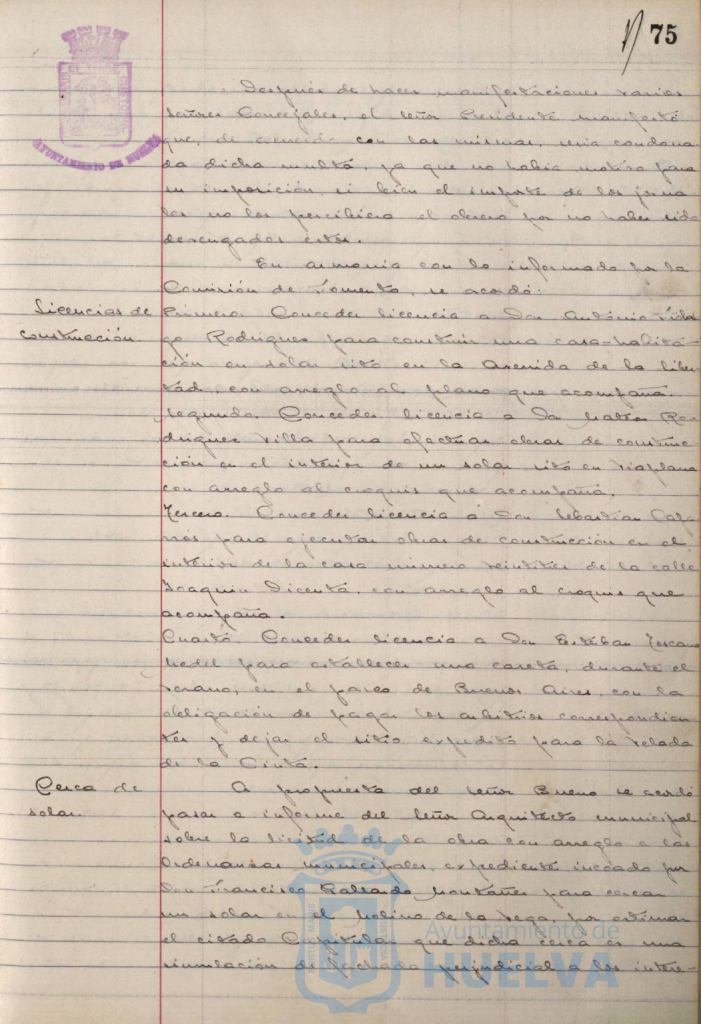 75
AYUNTAMIENTO DE HUELVA
Después de hacer manifestaciones varios
señores Concejales, el señor Presidente manifestó
que, de acuerdo con las mismas, sería condona
da dicha multa, ya que no había motivo para
su imposición, si bien el importe de los jorna
les no los percibiera el obrero por no haber sido
devengados estos.
En armonía con lo informado por la
Comisión de Fomento, se acordó:
Licencias de
construcción.
Primero. Conceder licencia a Don Antonio
go Rodríguez para construir una casa-habita-
ción en solar sito en la Avenida de la liber
tad, con arreglo al plano que acompaña.
Segundo. Conceder licencia a Ro-
dríguez Villa para efectuar obras de construc
ción en el interior de un solar sito en Viaplana
con arreglo al croquis que acompaña.
Tercero. Conceder licencia a Don Sebastián
para ejecutar obras de construcción en el
interior de la casa número veintitres de la calle
Joaquín Dicenta, con arreglo al croquis que
acompaña.
Cuarto. Conceder licencia a Don Estéban Toscano
Medel para establecer una caseta, durante el
verano, en el paseo de Buenos Aires, con la
obligación de pagar los arbitrios correspondien
tes y dejar el sitio expedito para la velada
de la Cinta.
Cerca de
solar.
A propuesta del señor Bueno se acordó
pasar a informe del señor Arquitecto municipal
sobre la licitud de la obra con arreglo a las
Ordenanzas municipales, expediente incoado por
Don Francisco Gallardo Montañés para cercar
un solar en el Molino de la Vega, por estimar
el citado Capitular que dicha cerca es una
simulación de fachada perjudicial a los intere-
Ayuntamiento de
HUELVA